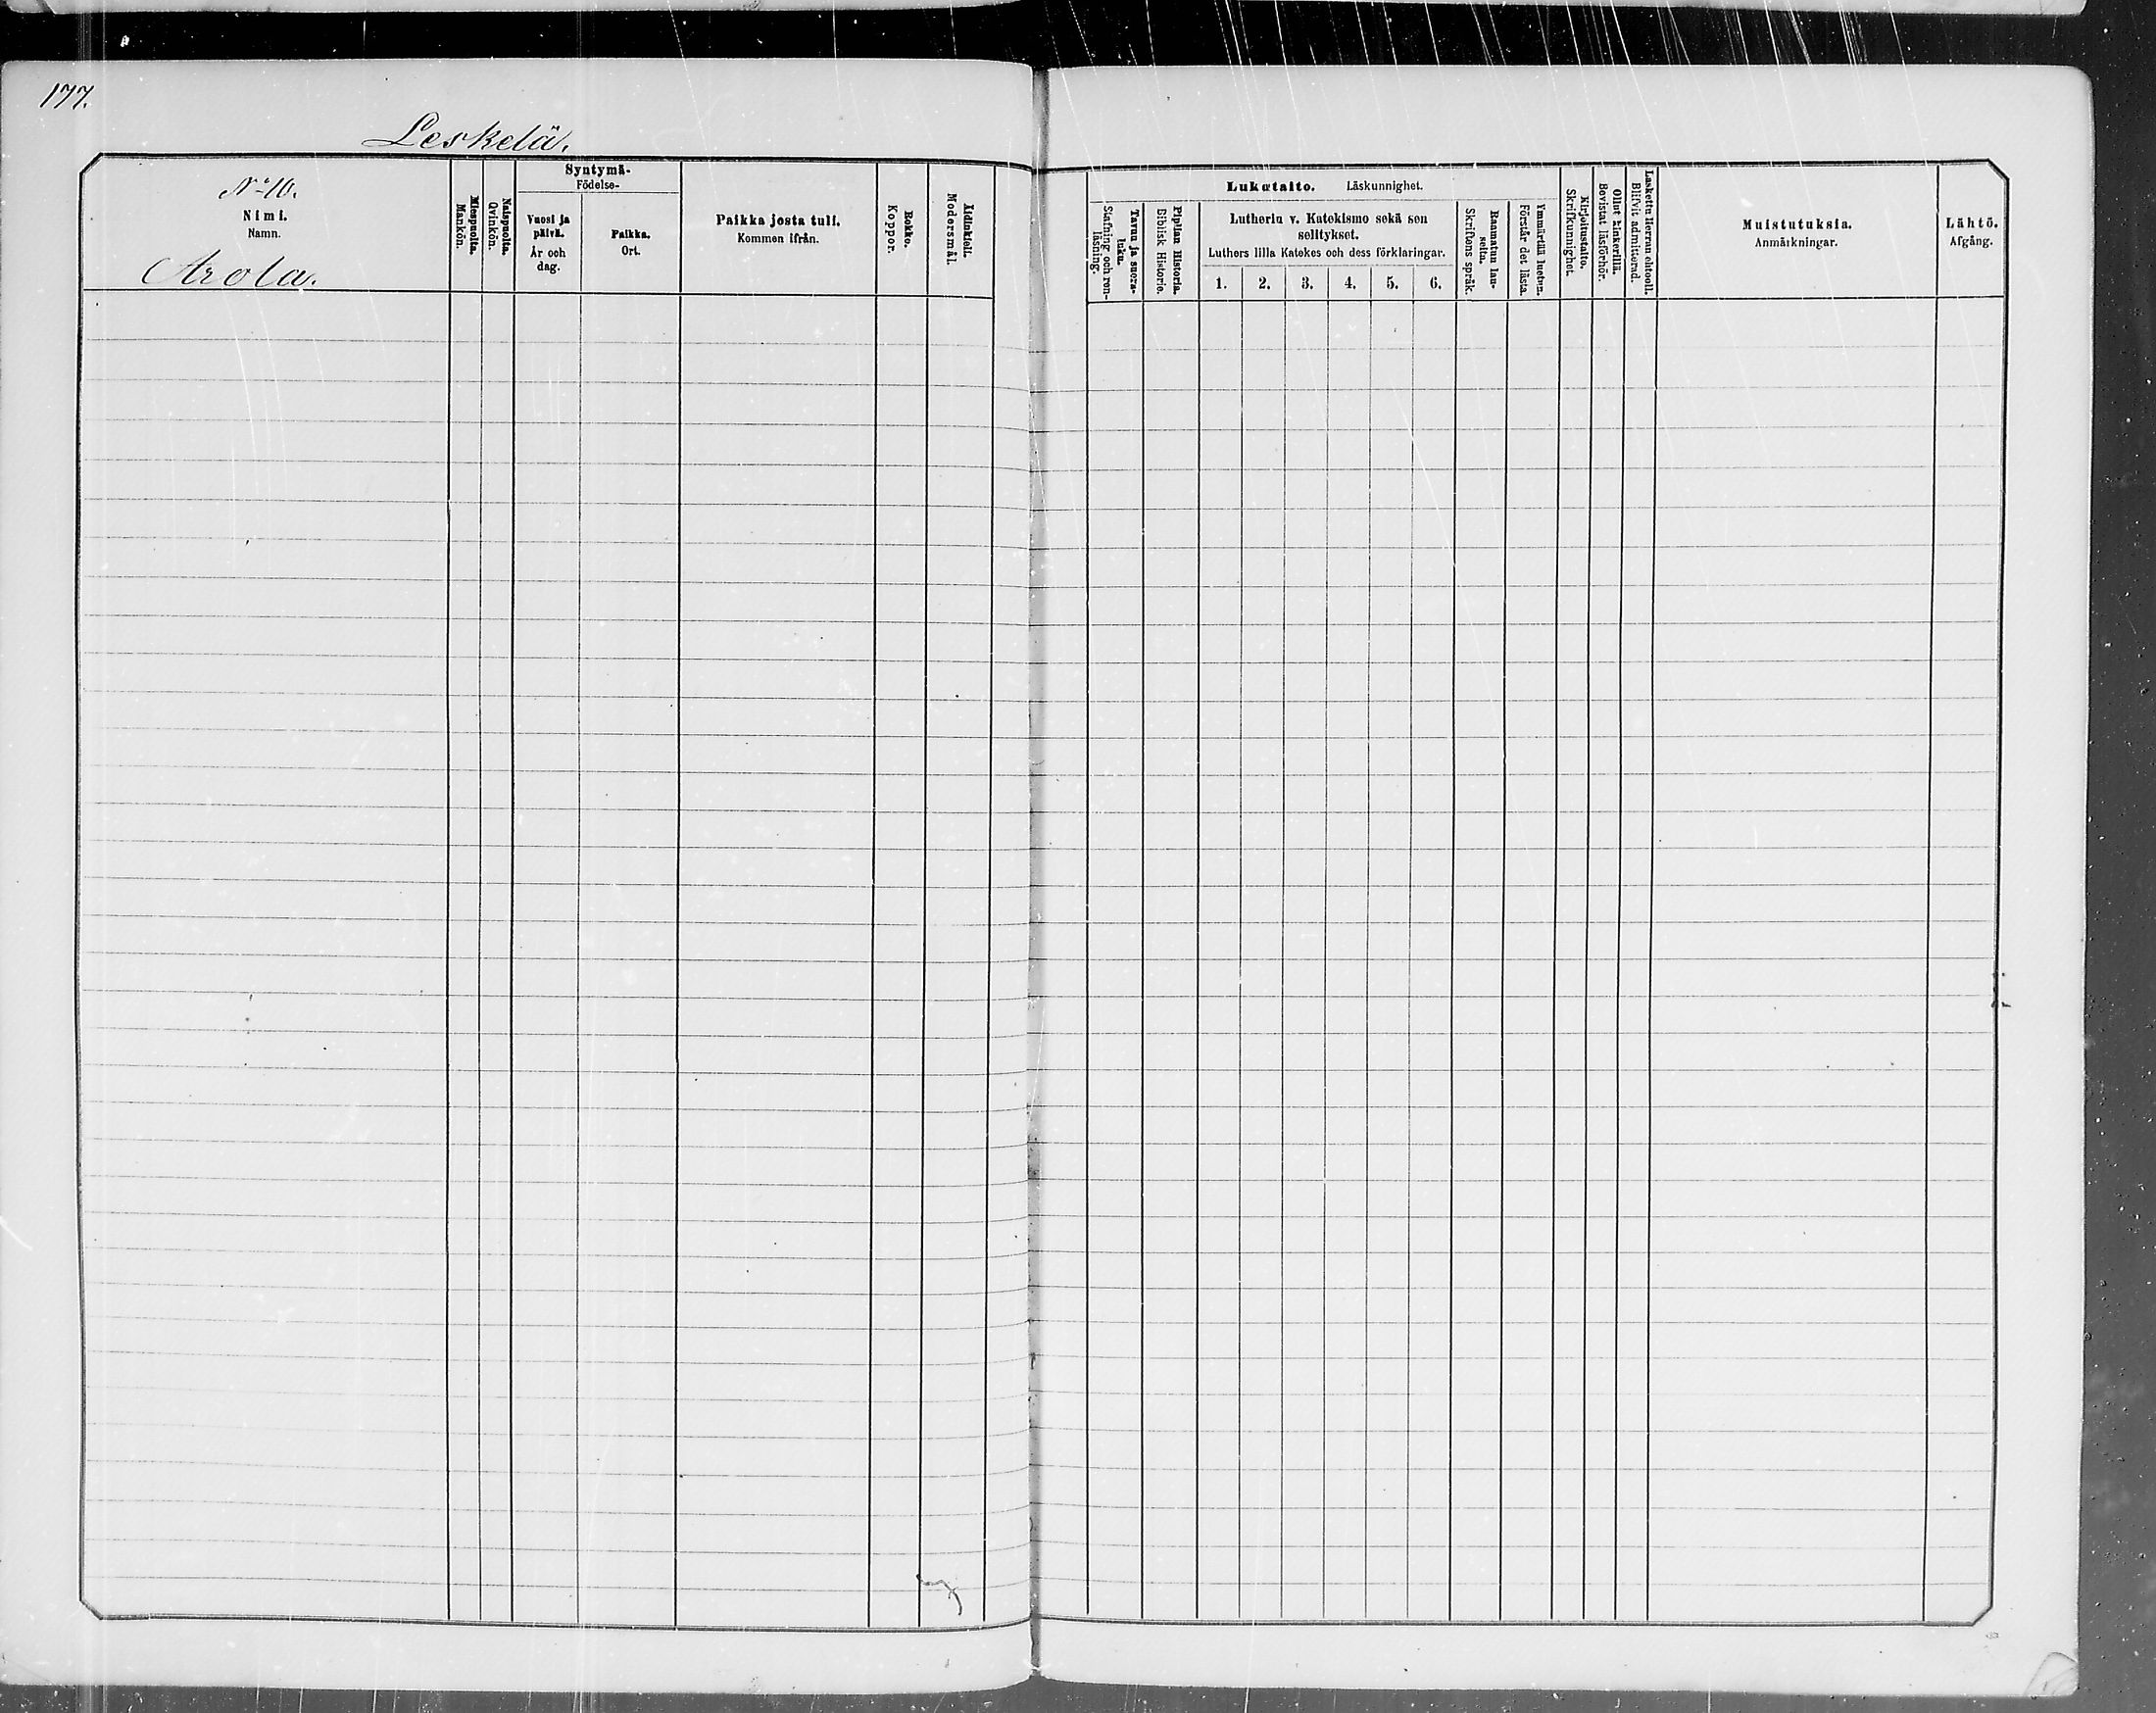 177.
Leskelä.
No 10.
Nimi.
Namn.
Arola.
Miespuolta.
Mankön.
Naispuolta.
Qvinkön.
Syntymä-
Födelse-
Vuosi ja
päivä.
År och
dag.
Paikka.
Ort.
Paikka josta tuli.
Kommen ifrån.
Rokko.
Koppor.
Äidinkieli.
Modersmål.
Lukutaito. Läskunnighet.
Tavuu ja suora-
luku.
Stafning och ren-
läsning.
Piplian Historia.
Biblisk Historie.
Lutherin v. Katekismo sekä sen
selitykset.
Luthers lilla Katekes och dess förklaringar.
1. 2. 3. 4. 5. 6.
Raamatun lau-
seita.
Skriftens språk.
Ymmärtää luetun.
Förstår det lästa.
Kirjoitustaito.
Skrifkunnighet.
Ollut kinkerillä.
Bevistat läsförhör.
Laskettu Herran ehtooll.
Blifvit admitterad.
Muistutuksia.
Anmärkningar.
Lähtö.
Afgång.